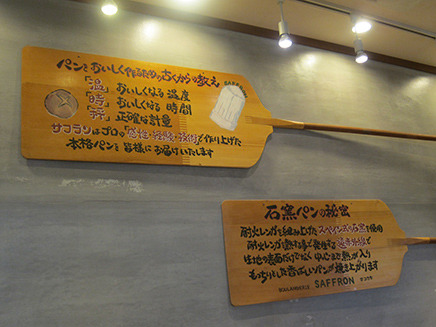 パンをおいしく作るための
「温」 おいしくなる 温度
「時」 おいしくなる 時間
正確な計量
サフランはプロの「感性・経験・技術」で作り上げた
本格パンを皆様にお届けいたします
石窯パンの秘密
耐火レンガを組み上げたスペイン式の石窯を使用
耐火レンガが熱する事で発生する遠赤外線で
生地の表面だけでなく 中心まで熱が入り
もっちりとした香ばしいパンが焼き上がります
SAFFRON